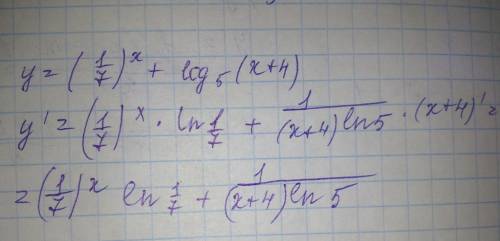 y = (1/7)^x + log₅(x+4)
y' = (1/7)^x · ln 1/7 + 1/((x+4) ln 5) · (x+4)' =
= (1/7)^x ln 1/7 + 1/((x+4) ln 5)